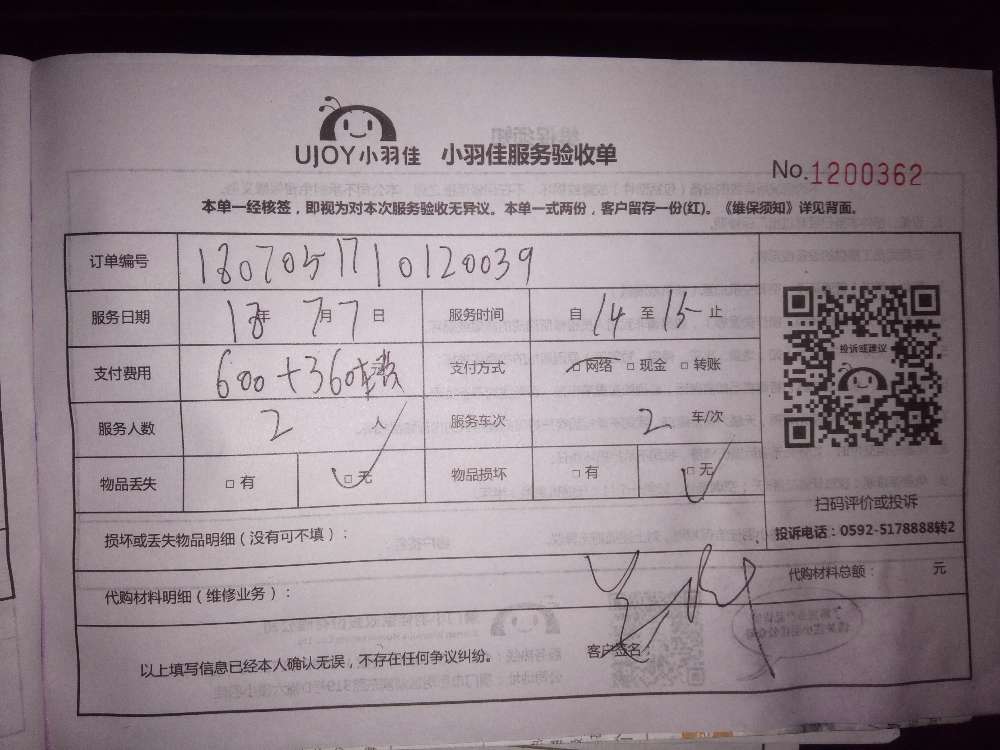 UJOY小羽佳 小羽佳服务验收单
No.1200362
本单一经核签，即视为对本次服务验收无异议。本单一式两份，客户留存一份(红)。《维保须知》详见背面。
订单编号 1807051710120039
服务日期 18年 7月7日 服务时间 自14至15止
支付费用 600+360 支付方式 □网络 □现金 □转账
服务人数 2人 服务车次 2车/次
物品丢失 □有 □无 物品损坏 □有 □无
投诉或建议
扫码评价或投诉
投诉电话：0592-5178888转2
损坏或丢失物品明细（没有可不填）：
代购材料明细（维修业务）： 代购材料总额： 元
以上填写信息已经本人确认无误，不存在任何争议纠纷。 客户签名：